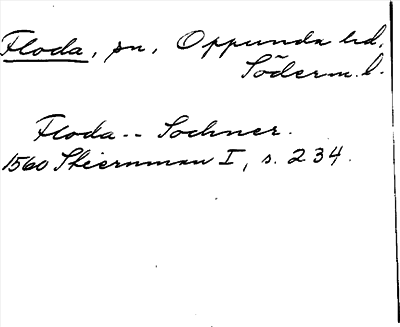 Floda, sn, Oppunda hd,
Söderm. l.
Floda -- Sochner.
1560 Stiernman I, s. 234.